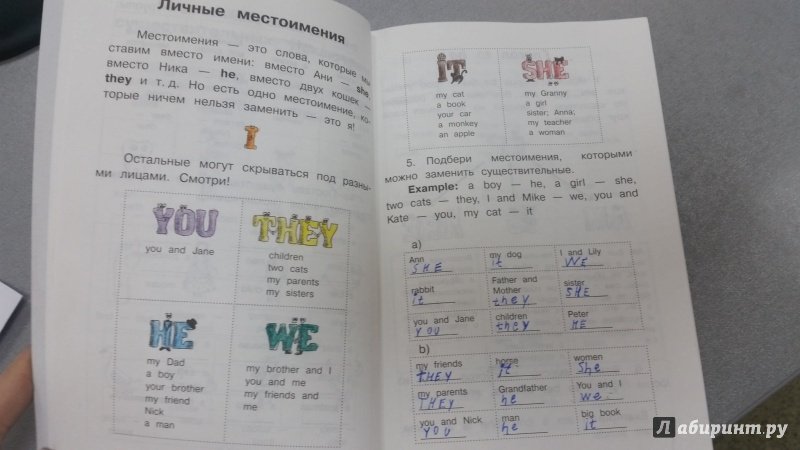 Личные местоимения
Местоимения — это слова, которые мы
ставим вместо имени: вместо Ани — she,
вместо Ника — he, вместо двух кошек —
they и т. д. Но есть одно местоимение, ко-
торые ничем нельзя заменить — это я!
I
Остальные могут скрываться под разны-
ми лицами. Смотри!
YOU
you and Jane
THEY
children
two cats
my parents
my sisters
HE
my Dad
a boy
your brother
my friend
Nick
a man
WE
my brother and I
you and me
my friends and
me
IT
my cat
a book
your car
a monkey
an apple
SHE
my Granny
a girl
sister; Anna;
my teacher
a woman
5. Подбери местоимения, которыми
можно заменить существительные.
Example: a boy — he, a girl — she,
two cats — they, I and Mike — we, you and
Kate — you, my cat — it
a)
Ann my dog I and Lily
SHE it WE
rabbit Father and Mother sister
it they SHE
you and Jane children Peter
YOU they HE
b)
my friends horse women
THEY it She
my parents Grandfather You and I
THEY he we
you and Nick man big book
YOU he it
Лабиринт.ру